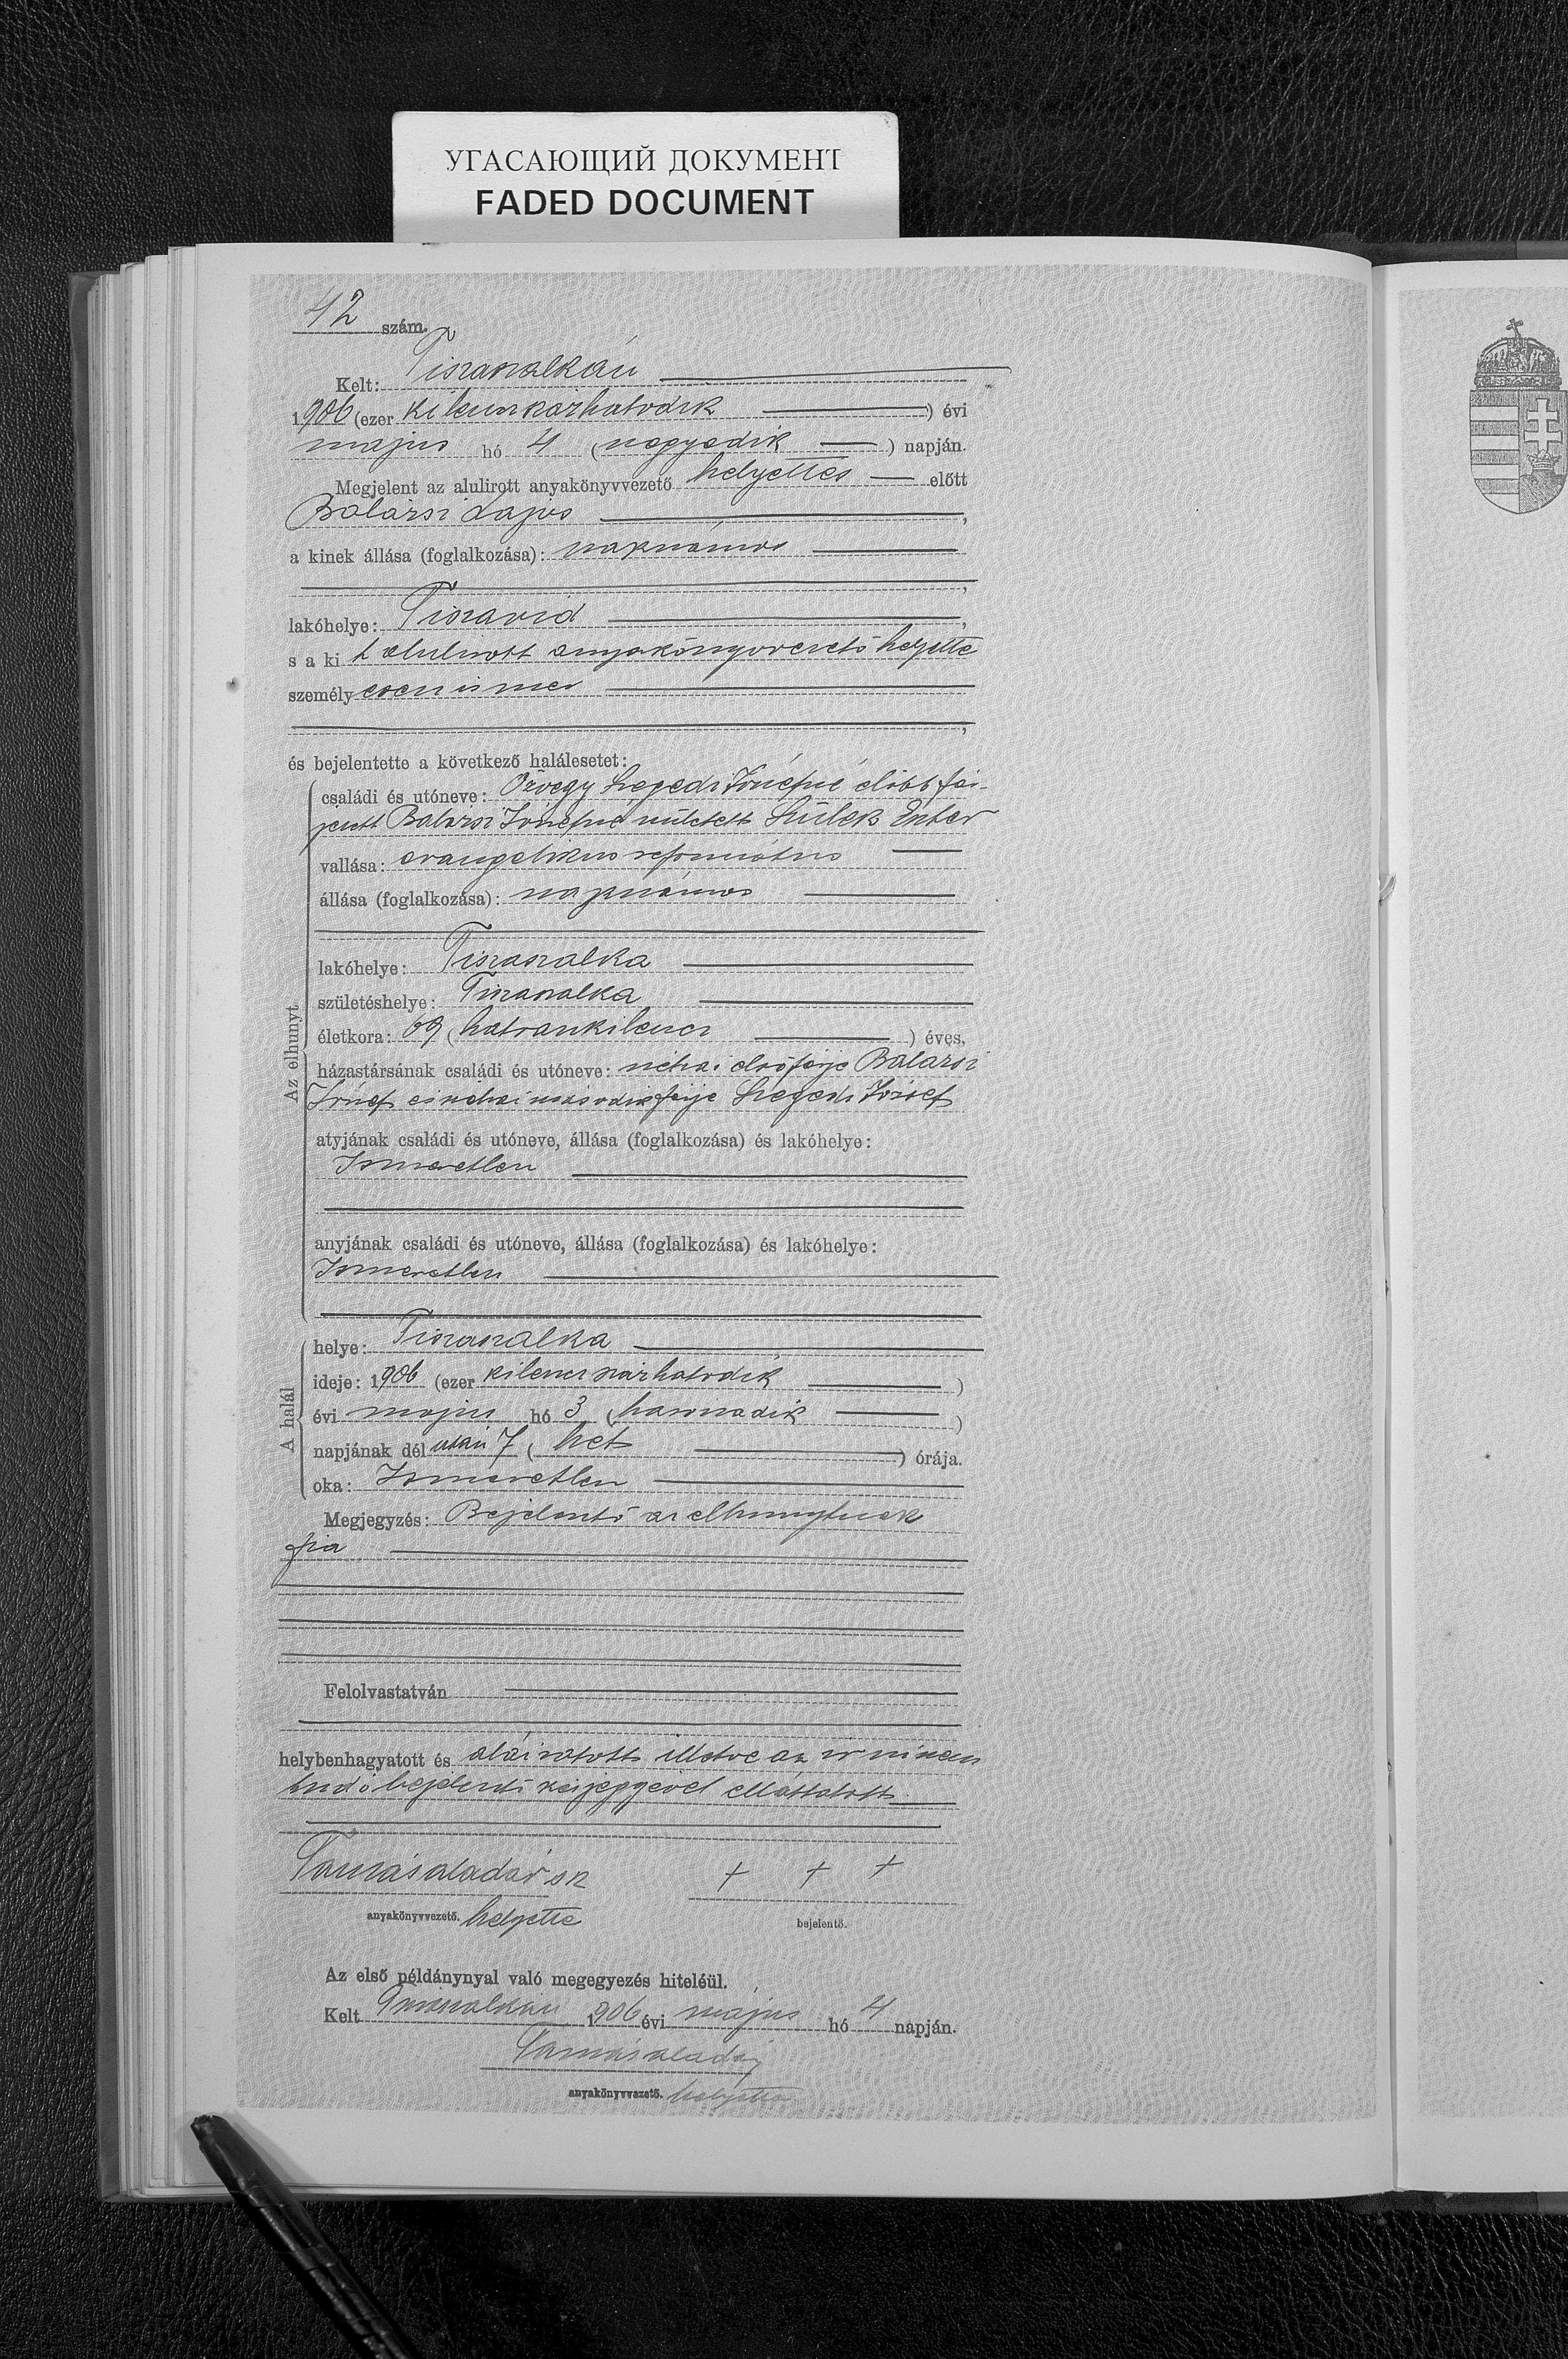 УГАСАЮЩИЙ ДОКУМЕНТ
FADED DOCUMENT
42 szám.
Kelt: Tiszaszalkán
1906 (ezer kilenczszázhatodik) évi
majus hó 4 (negyedik) napján.
Megjelent az alulirott anyakönyvvezető helyettes előtt
Balázsi Lajos,
a kinek állása (foglalkozása): napszámos
lakóhelye: Tiszavid,
s a ki t alulirott anyakönyvvezető helyette
személyesen ismer
és bejelentette a következő halálesetet:
családi és utóneve: Özvegy Szegedi Józsefné előbb fér-
jezett Balázsi Józsefné született Eszter
vallása: evangelikus református
állása (foglalkozása): napszámos
lakóhelye: Tiszaszalka
születéshelye: Tiszaszalka
életkora: 69 (hatvankilencz) éves,
házastársának családi és utóneve: néhai első férje Balázsi
József és néhai második férje Szegedi József
Az elhunyt
atyjának családi és utóneve, állása (foglalkozása) és lakóhelye:
Ismeretlen
anyjának családi és utóneve, állása (foglalkozása) és lakóhelye:
Ismeretlen
helye: Tiszaszalka
ideje: 1906 (ezer kilenczszázhatodik)
évi majus hó 3 (harmadik)
A halál
napjának dél után 7 (hét) órája.
oka: Ismeretlen
Megjegyzés: Bejelentő az elhunytnak
fia
Felolvastatván
helybenhagyatott és aláiratott illetve az irni nem
tudó bejelentő kézjegyével elláttatott
Tamás Aladár sk
+ + +
anyakönyvvezető. helyette
bejelentő.
Az első példánynyal való megegyezés hiteléül.
Kelt Tiszaszalkán 1906 évi május hó 4 napján.
Tamás Aladár
anyakönyvvezető. helyette